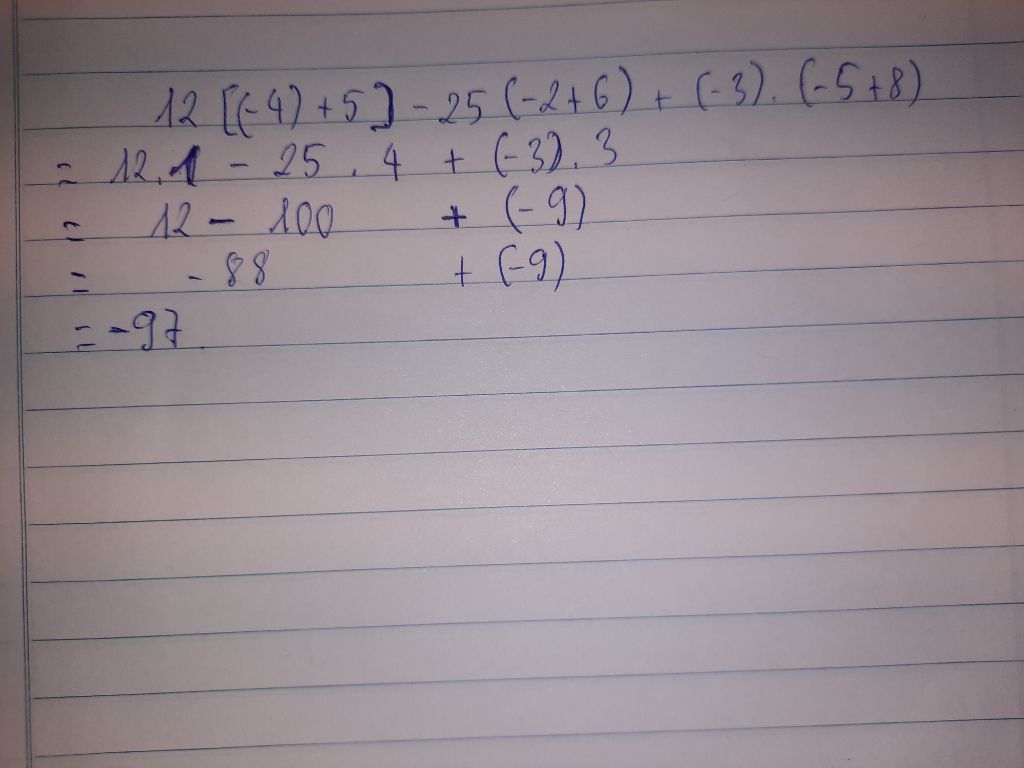 12 [(-4) + 5] - 25 (-2+6) + (-3). (-5+8)
= 12.1 - 25 . 4 + (-3). 3
= 12 - 100 + (-9)
= - 88 + (-9)
= -97.